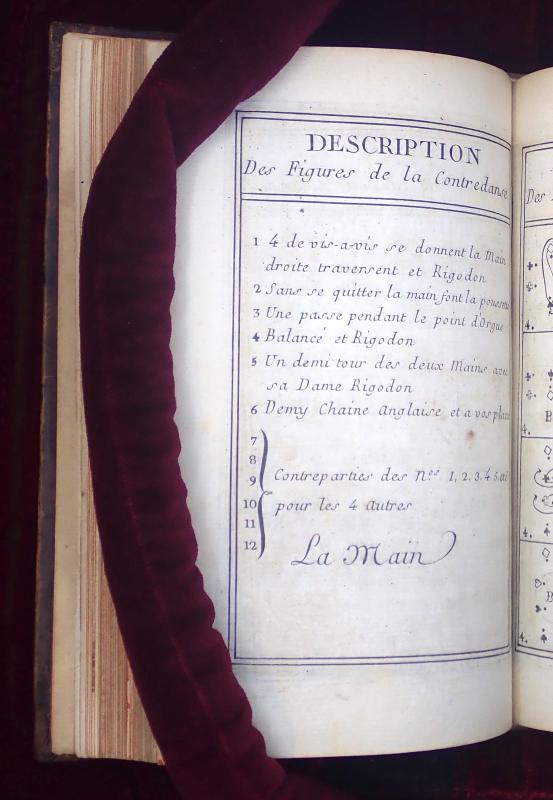 DESCRIPTION
Des Figures de la Contredanse
1 4 de vis-a-vis se donnent la Main
droite traversent et Rigodon
2 Sans se quitter la main font la poussette
3 Une passe pendant le point d'Orgue
4 Balancé et Rigodon
5 Un demi tour des deux Mains avec
sa Dame Rigodon
6 Demy Chaine Anglaise et a vos places
7
8
9 Contreparties des Nos. 1, 2. 3. 4. 5. et
10 pour les 4 autres
11
12
La Main
Des
4.
B
4.
4.
B
4.